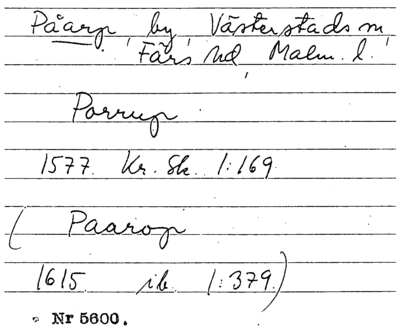 Påarp, by, Västerstads sn,
Färs hd, Malm. l.
Porrup
1577. Kr. Sk. 1:169.
(Paarop
1615. ib. 1:379.)
Nr 5600.